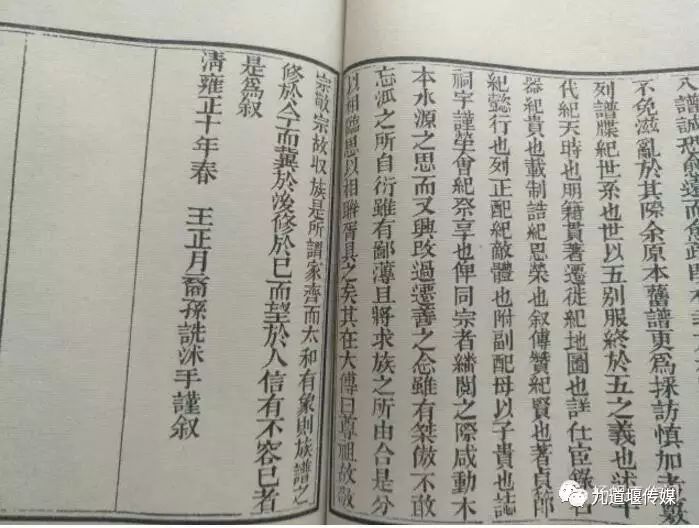 譜誠恐愈遠而愈疏
不免滋亂於其際余原本舊譜更爲採訪慎加
列譜牒紀世系也世以五别服終於五之義也述
代紀天時也明籍貫著遷徙紀地圖也詳仕宦錄
器紀貴也載制誥紀恩榮也叙傳贊紀賢也著貞節
紀懿行也列正配紀敵體也附副配母以子貴也誌
祠宇謹坐會紀祭享也俾同宗者繙閱之際感動木
本水源之思而又興改過遷善之念雖有桀傲不敢
忘派之所自衍雖有鄙薄且將求族之所由合是分
以相臨恩以相聯胥具之矣其在大傳曰尊祖故敬
宗敬宗故収族是所謂家齊而太和有象則族譜之
修於今而冀於後修於已而望於人信有不容已者
是爲叙
清雍正十年春 王正月裔孫詵沐手謹叙
九道堰传媒